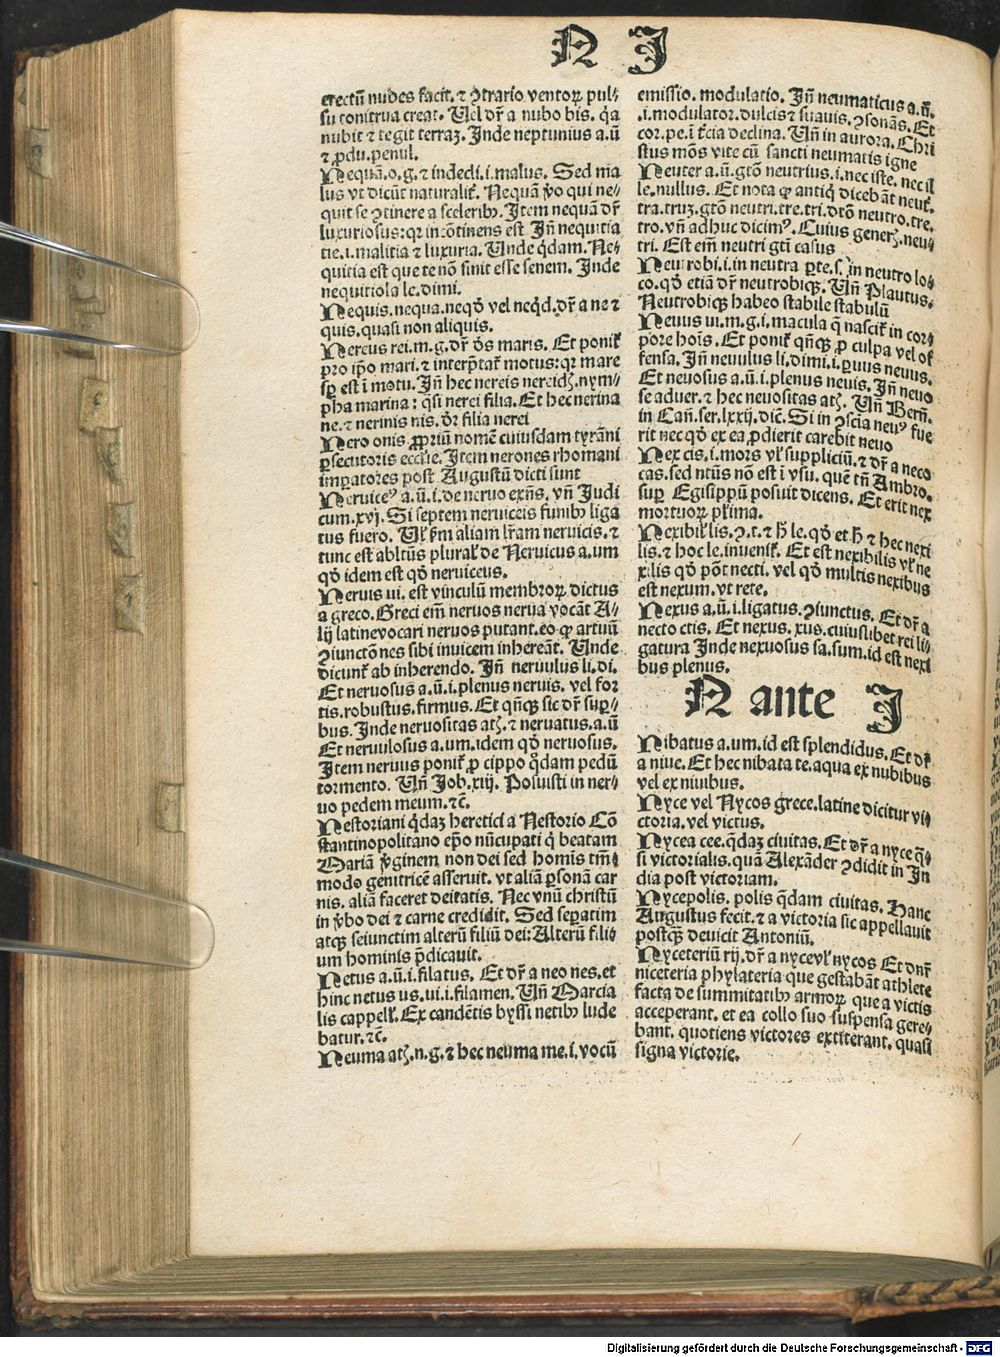 N J
erectū nubes facit. ⁊ ꝯtrario ventoꝝ pul⸗
su tonitrua creat. Uel dr̄ a nubo bis. q̄a
nubit ⁊ tegit terraʒ. Inde neptunius a.ū
⁊ ꝓdu.penul.
Nequā.o.g.⁊ indecli.i.malus. Sed ma
lus vt dicūt naturalit̉. Nequā ꝟo qui ne⸗
quit se ꝯtinere a sceleribꝰ. Item nequā dr̄
luxuriosus:qꝛ incōtinens est Iñ nequitia
tie.i.malitia ⁊ luxuria. Unde q̇dam. Ne⸗
quitia est que te nō sinit esse senem. Inde
nequitiola le.dimi.
Nequis.nequa.neqd̉ vel neq̇d.dr̄ a ne ⁊
quis.quasi non aliquis.
Nereus rei.m.g.dr̄ de̓s maris. Et ponit̉
ꝓro ip̄o mari.⁊ interp̄tat̉ motus:qꝛ mare
sꝑ est ī motu. Iñ hec nereis nereidꝫ.nym⸗
pha marina: q̄si nerei filia. Et hec nerina
ne.⁊ nerinis nis. dr̄ filia nerei
Nero onis ꝓpriū nomē cuiusdam tyrāni
ꝑsecutoris eccl̓ie. Item nerones rhomani
imꝑatores post Augustū dicti sunt
Neruiceꝰ a.ū.i.de neruo exn̄s. vn̄ Judi
cum.xvj. Si septem neruiceis funibꝰ liga
tus fuero. Ul̓ ẜm aliam lr̄am neruicis.⁊
tunc est abltūs plural̓ de Neruicus a.um
qd̉ idem est qd̉ neruiceus.
Neruis ui. est vinculū membroꝝ dictus
a greco. Greci em̄ neruos nerua vocāt A⸗
lij latine vocari neruos putant.eo ꝙ artuū
ꝯiunctōnes sibi inuicem inhereāt. Unde
dicunt̉ ab inherendo. Iñ neruulus li.di.
Et neruosus a.ū.i.plenus neruis. vel for
tis.robustus.firmus. Et qñqꝫ sic dr̄ suꝑ⸗
bus. Inde neruositas atꝫ.⁊ neruatus.a.ū
Et neruulosus a.um.idem qd̉ neruosus.
Item neruus ponit̉ ꝓ cippo q̇dam pedū
tormento. Un̄ Job.xiij. Posuisti in ner⸗
uo pedem meum.⁊c̄.
Nestoriani q̇daʒ heretici a Nestorio Cō
stantinopolitano ep̄o nūcupati q̇ beatam
Mariā ꝟginem non dei sed homis tm̄
modo genitricē asseruit. vt aliā ꝑsonā car
nis. aliā faceret deitatis. Nec vnū christū
in ꝟbo dei ⁊ carne credidit. Sed seꝑatim
atqꝫ seiunctim alterū filiū dei:Alterū fili⸗
um hominis p̄dicauit.
Netus a.ū.i.filatus. Et dr̄ a neo nes.et
hinc netus us.ui.i.filamen. Un̄ Marcia
lis cappell̓. Ex candētis byssi netibꝰ lude
batur.⁊c̄.
Neuma atꝫ.n.g.⁊ hec neuma me.i.vocū
emissio. modulatio. Iñ neumaticus a.ū.
.i.modulator.dulcis ⁊ suauis. ꝯsonās. Et
cor.pe.ī t̓cia declina. Un̄ in aurora. Chri
stus mōs vite cū sancti neumatis igne
Neuter a.ū.gtō neutrius.i.nec iste. nec il
le.nullus. Et nota ꝙ antiq̇ dicebāt neut̉.
tra.truʒ.gtō neutri.tre.tri.dtō neutro.tre.
tro.vn̄ adhuc dicimꝰ. Cuius generꝫ.neu⸗
tri. Est em̄ neutri gtī casus
Neutrobi.i.in neutra ꝑte.s.in neutro lo⸗
co.qd̉ etiā dr̄ neutrobiqꝫ. Un̄ Plautus.
Neutrobiqꝫ habeo stabile stabulū
Neuus ui.m.g.i.macula q̄ nascit̉ in cor⸗
pore hoīs. Et ponit̉ qñqꝫ ꝓ culpa vel of
fensa. Iñ neuulus li.dimi.i.ꝑuus neuus.
Et neuosus a.ū.i.plenus neuis. Iñ neuo
se aduer.⁊ hec neuositas atꝫ. Un̄ Bern̄.
in Can̄.ser.lxxij.dic̄. Si in ꝯscīa neuꝰ fue
rit nec qd̉ ex ea ꝓdierit carebit neuo
Nex cis.i.mors vl̓ suppliciū.⁊ dr̄ a neco
cas.sed ntūs nō est ī vsu. quē tn̄ Ambro.
suꝑ Egisippū posuit dicens. Et erit nex
mortuoꝝ pl̓ima.
Nexibil̓ lis.ꝯ.t.⁊ h̄ le.qd̉ et h̄ ⁊ hec nexi
lis.⁊ hoc le.inuenit̉. Et est nexibilis vl̓ ne
xilis qd̉ pōt necti. vel qd̉ multis nexibus
est nexum.vt rete.
Nexus a.ū.i.ligatus.ꝯiunctus. Et dr̄ a
necto ctis. Et nexus.xus.cuiuslibet rei li⸗
gatura Inde nexuosus sa.sum.id est nexi
bus plenus.
N ante J
Nibatus a.um.id est splendidus. Et dr̄
a niue. Et hec nibata te.aqua ex nubibus
vel ex niuibus.
Nyce vel Nycos grece.latine dicitur vi⸗
ctoria.vel victus.
Nycea cee.q̇daʒ ciuitas. Et dr̄ a nyce q̄⸗
si victorialis.quā Alexāder ꝯdidit in In
dia post victoriam.
Nycepolis.polis q̇dam ciuitas. Hanc
Augustus fecit.⁊ a victoria sic appellauit
postqꝫ deuicit Antoniū.
Nyceteriū rij.dr̄ a nyce vl̓ nycos Et dnr̄
niceteria phylateria que gestabāt athlete
facta de summitatibꝰ armoꝝ que a victis
acceperant. et ea collo suo suspensa gere⸗
bant. quotiens victores extiterant. quasi
signa victorie.
Digitalisierung gefördert durch die Deutsche Forschungsgemeinschaft - DFG